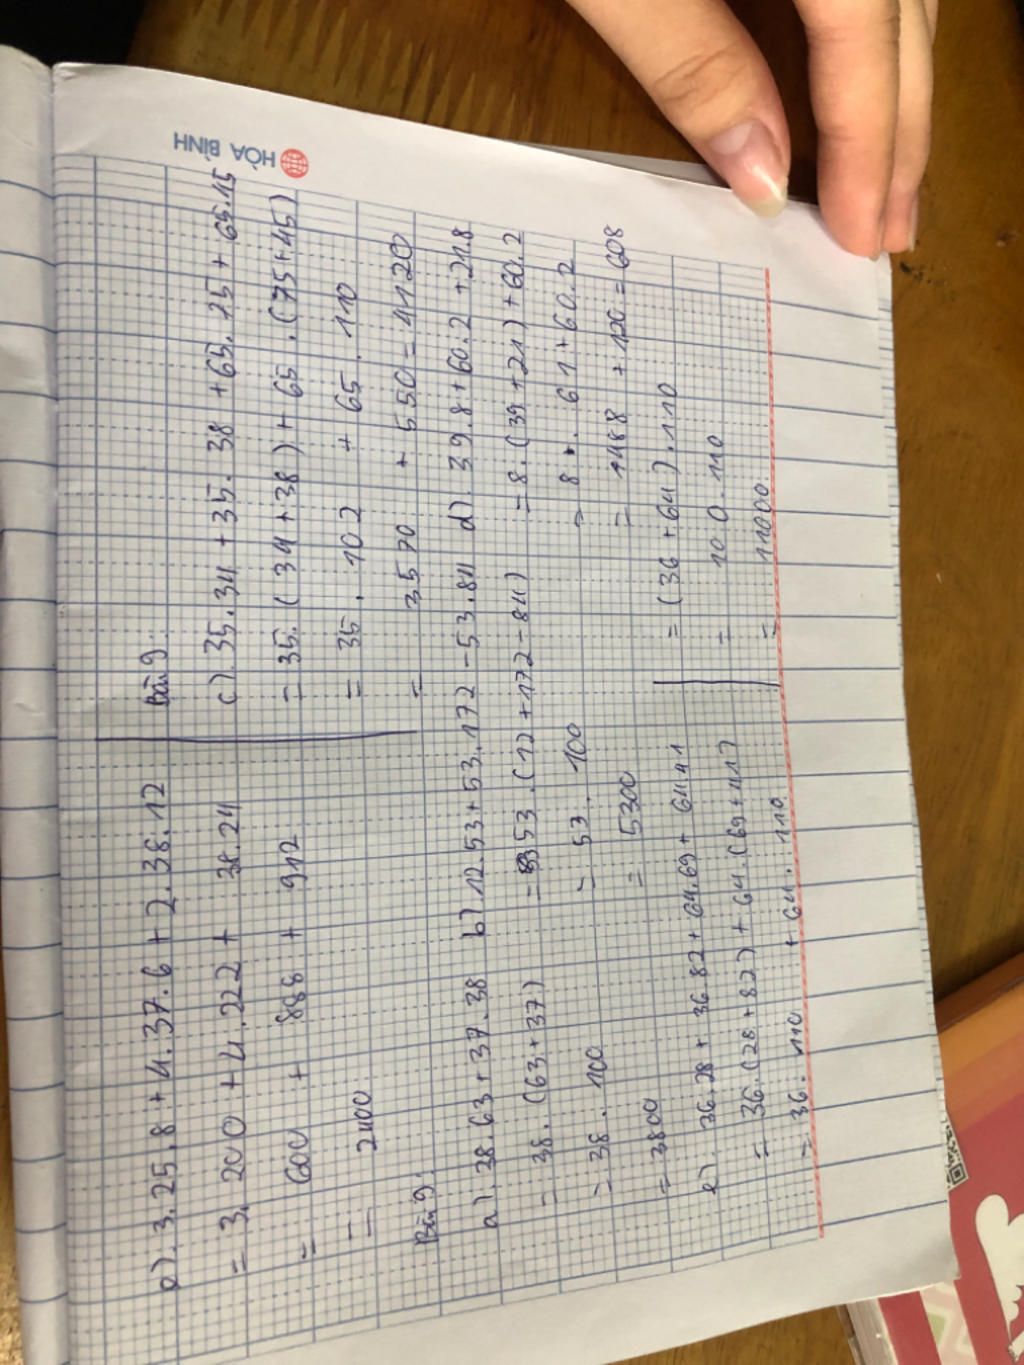 HÒA BÌNH
e). 3.25.8 + 4.37.6 + 2.38.12
= 3. 200 + 4.222 + 38.24
= 600 + 888 + 912
= 2400
Bài 9.
a). 38.63 + 37.38
= 38. (63+37)
= 38. 100
= 3800
b) 12.53 + 53.172 - 53.84
= 53. (12 + 172 - 84)
= 53. 100
= 5300
Bài 9.
c). 35.34 + 35. 38 + 65. 75 + 65.45
= 35. (34 + 38) + 65. (75+45)
= 35. 102 + 65. 110
= 3570 + 550 = 4120
d). 39.8 + 60.2 + 21.8
= 8. (39 + 21) + 60. 2
= 8. 61 + 60. 2
= 1488 + 120 = 608
e). 36.28 + 36.82 + 64.69 + 64.41
= 36. (28 + 82) + 64. (69 + 41)
= 36. 110 + 64. 110
= (36 + 64). 110
= 100. 110
= 11000